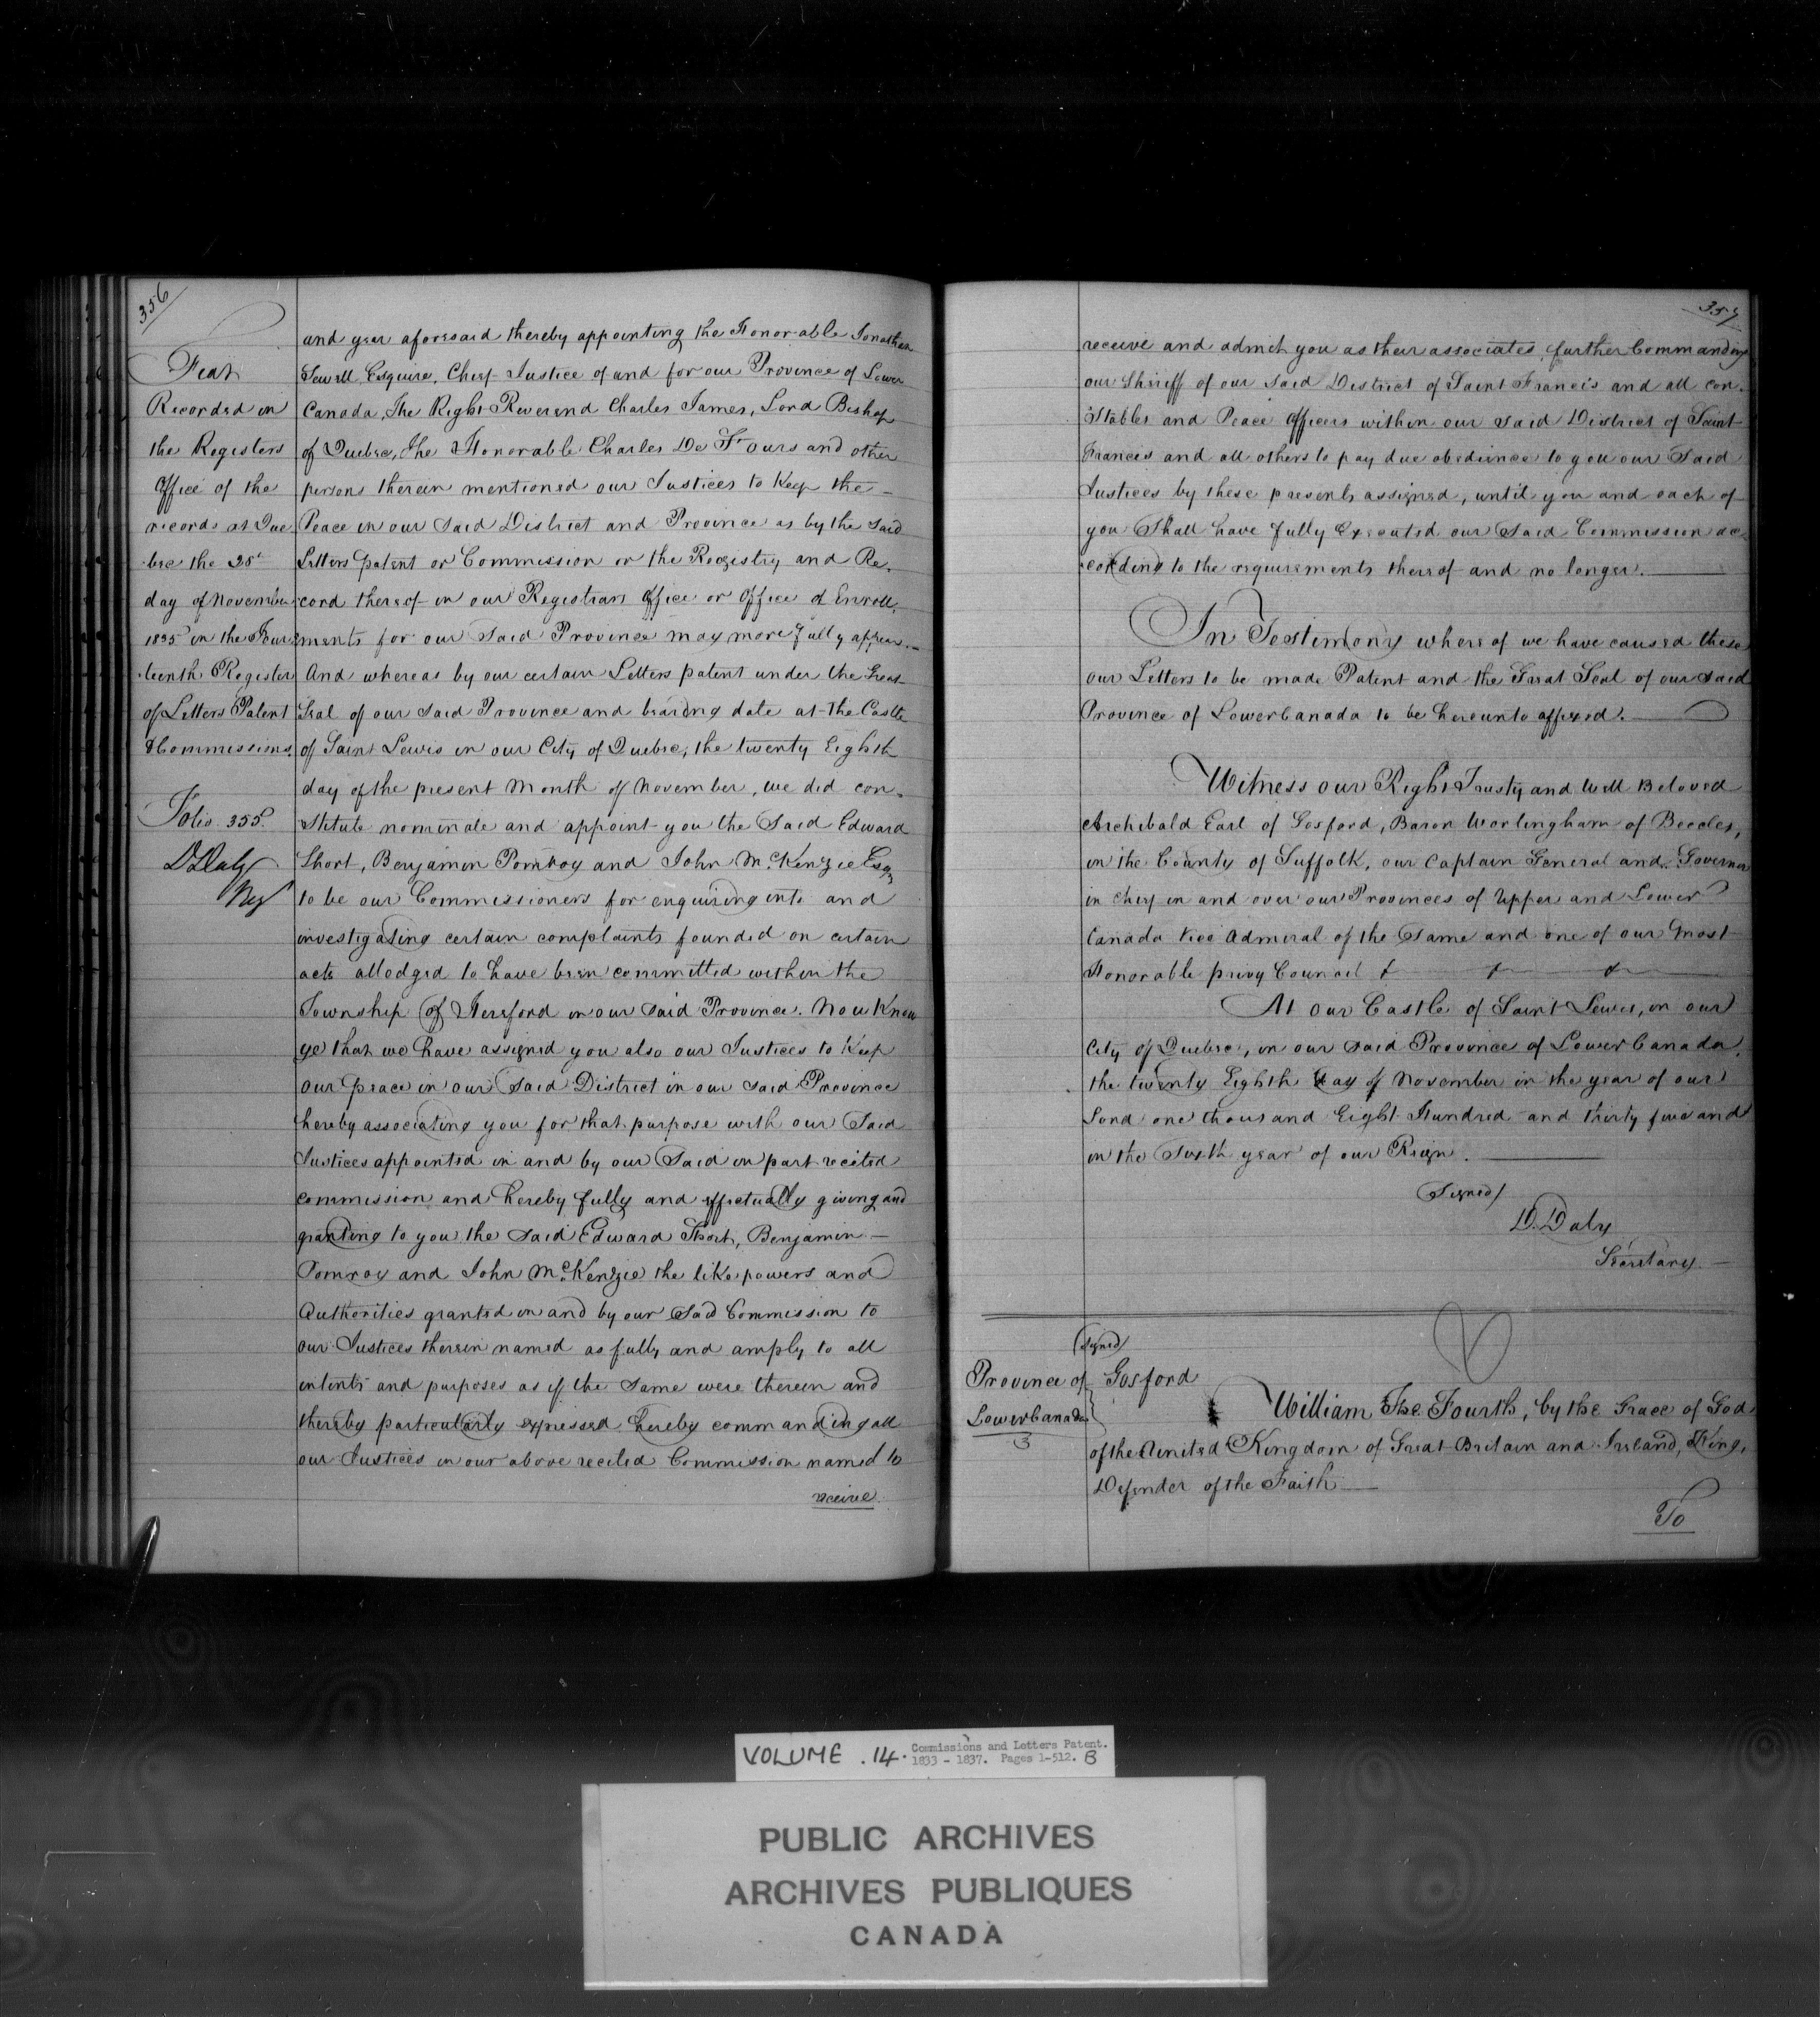 356
Fiat
Recorded in
the Registers
Office of the
records at Que
bec the 28th
day of November
1835 in the Four
teenth Register
of Letters Patent
& Commissions.
Folio 355.
D Daly
Reg
and year aforesaid thereby appointing the Honorable Jonathan
Sewell, Esquire, Chief Justice of and for our Province of Lower
Canada, The Right Reverend Charles James, Lord Bishop
of Quebec, the Honorable Charles De
persons therein mentioned our Justices to Keep the
Peace in our said District and Province as by the said
Letters patent or Commission or the Registry and Re.
cord thereof in our Registrars Office or Office of Enroll.
ments for our said Province may more fully appear.
And whereas by our certain Letters patent under the Great
Seal of our said Province and bearing date at the Castle
of Saint Lewis in our City of Quebec, the twenty Eighth
day of the present Month of November, we did con.
stitute nominate and appoint you the Said Edward
Short, Benjamin Pomroy and John McKenzie Esqrs
to be our Commissioners for enquiring into and
investigating certain complaints founded on certain
acts alledged to have been committed within the
Township of Hereford in our said Province. Now Know
ye that we have assigned you also our Justices to Keep
our peace in our Said District in our said Province
hereby associating you for that purpose with our Said
Justices appointed in and by our Said in part recited
commission and hereby fully and effectually giving and
granting to you the said Edward Short, Benjamin
Pomroy and John McKenzie the like powers and
Authorities granted in and by our Said Commission to
our Justices therein named as fully and amply to all
intents and purposes as if the same were therein and
thereby particularly expressed hereby commanding all
our Justices in our above recited Commission named to
receive
357
receive and admit you as their associates, further Commanding
our Sheriff of our said District of Saint Francis and all con.
stables and Peace Officers within our said District of Saint
Francis and all others to pay due obedience to you our Said
Justices by these presents assigned, until you and each of
you Shall have fully Executed our Said Commission ac
cording to the requirements thereof and no longer.
In Testimony whereof we have caused these
our Letters to be made Patent and the Great Seal of our said
Province of Lower Canada to be hereunto affixed.
Witness our Right Trusty and Well Beloved
Archibald Earl of Gosford, Baron Worlingham of Beccles,
in the County of Suffolk, our Captain General and Governor
in chief in and over our Provinces of Upper and Lower
Canada Vice Admiral of the Same and one of our Most
Honorable privy Council
At our Castle of Saint Lewis, in our
City of Quebec, in our said Province of Lower Canada,
the twenty Eighth day of November in the year of our
Lord one thousand Eight Hundred and thirty five and
in the Sixth year of our Reign.
(Signed)
D. Daly
Secretary
(Signed)
Gosford
Province of
Lower Canada
William The Fourth, by the Grace of God
of the United Kingdom of Great Britain and Ireland, King,
Defender of the Faith
To
VOLUME .14. Commissions and Letters Patent.
1833 - 1837. Pages 1-512. B
PUBLIC ARCHIVES
ARCHIVES PUBLIQUES
CANADA